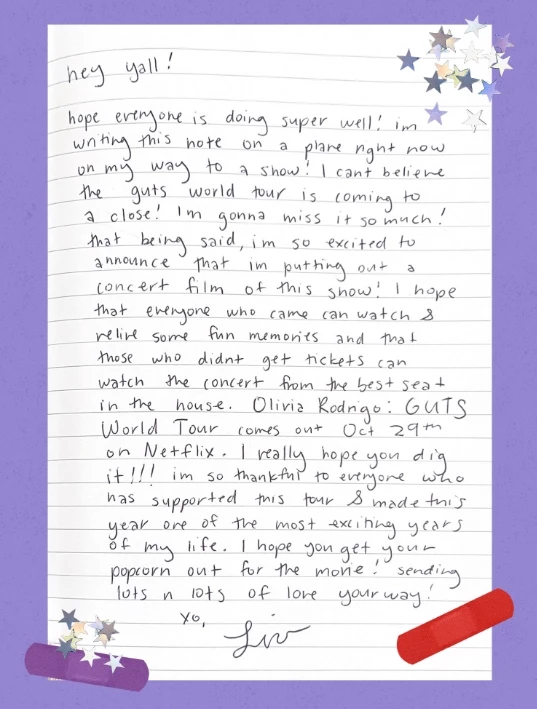 hey yall!
hope everyone is doing super well! im
writing this note on a plane right now
on my way to a show! I cant believe
the guts world tour is coming to
a close! I'm gonna miss it so much!
that being said, im so excited to
announce that im putting out a
concert film of this show! I hope
that everyone who came can watch &
relive some fun memories and that
those who didnt get tickets can
watch the concert from the best seat
in the house. Olivia Rodrigo: GUTS
World Tour comes out Oct 29th
on Netflix. I really hope you dig
it!!! im so thankful to everyone who
has supported this tour & made this
year one of the most exciting years
of my life. I hope you get your
popcorn out for the movie! sending
lots n lots of love your way!
xo,
Liv